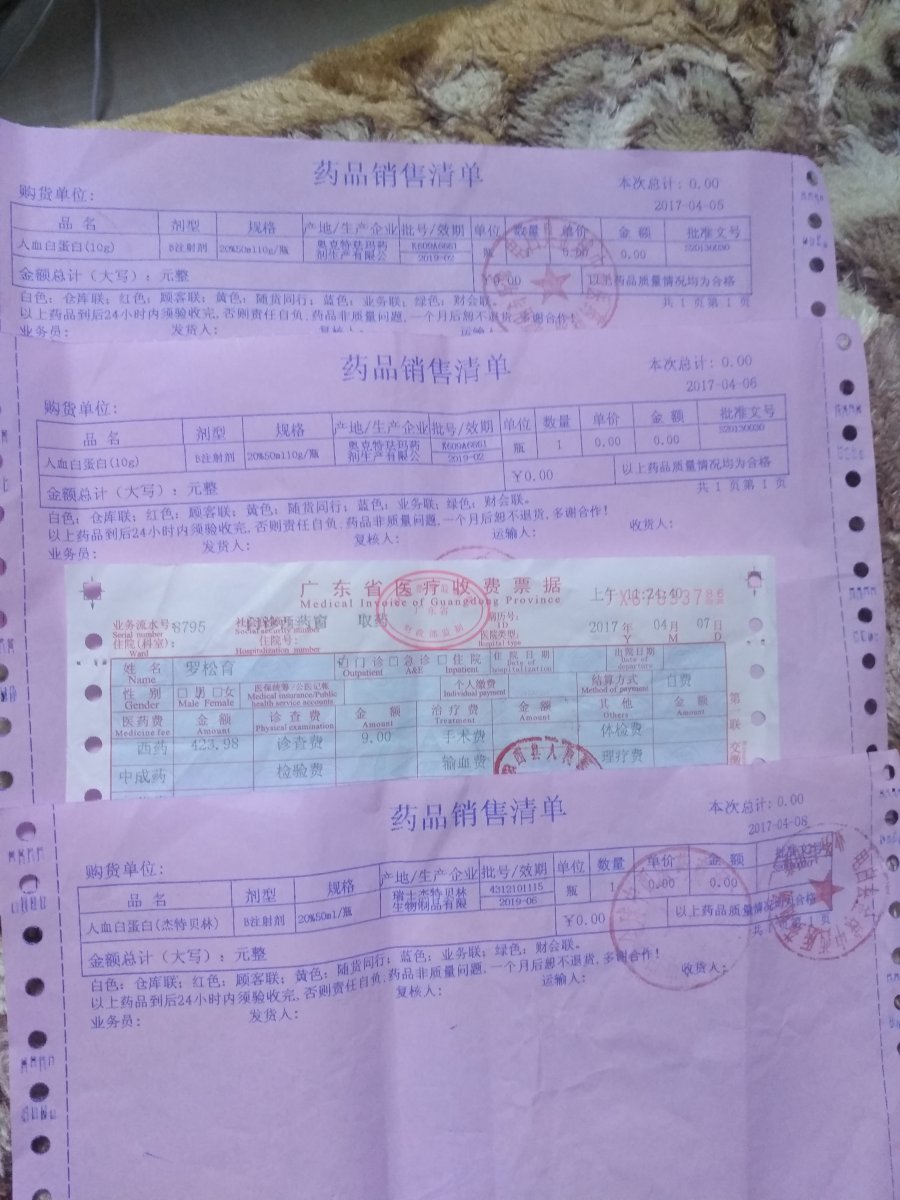 药品销售清单
购货单位:
本次总计: 0.00
2017-04-05
品 名 剂型 规格 产地/生产企业 批号/效期 单位 数量 单价 金 额 批准文号
人血白蛋白(10g) B注射剂 20%50ml10g/瓶 奥克特珐玛药剂生产有限公 K609A6661 2019-02 瓶 0.00 0.00 S20130030
金额总计（大写）: 元整 ¥0.00 以上药品质量情况均为合格
白色: 仓库联; 红色: 顾客联; 黄色: 随货同行; 蓝色: 业务联; 绿色: 财会联。 共 1 页第 1 页
以上药品到后24小时内须验收完, 否则责任自负, 药品非质量问题, 一个月后恕不退货, 多谢合作!
业务员: 发货人: 复核人: 运输人:
药品销售清单
购货单位:
本次总计: 0.00
2017-04-06
品 名 剂型 规格 产地/生产企业 批号/效期 单位 数量 单价 金 额 批准文号
人血白蛋白(10g) B注射剂 20%50ml10g/瓶 奥克特珐玛药剂生产有限公 K609A6661 2019-02 瓶 1 0.00 0.00 S20130030
金额总计（大写）: 元整 ¥0.00 以上药品质量情况均为合格
白色: 仓库联; 红色: 顾客联; 黄色: 随货同行; 蓝色: 业务联; 绿色: 财会联。 共 1 页第 1 页
以上药品到后24小时内须验收完, 否则责任自负, 药品非质量问题, 一个月后恕不退货, 多谢合作!
业务员: 发货人: 复核人: 运输人: 收货人:
广东省医疗收费票据
Medical Invoice of Guangdong Province
上午 11:24:40
业务流水号: 8795 取药 病历号:
Serial number Social security number ID
住院(科室): 住院号: 医院类型: 2017年 04月 07日
Ward Hospitalization number Hospital type Y M D
姓 名 罗松育 门诊 急诊 住院 住院日期 出院日期
Name Outpatient A&E Inpatient Date of hospitalization Date of departure
性 别 男 女 医保统筹/公医记帐 个人缴费 结算方式 自费
Gender Male Female Medical insurance/Public health service accounts Individual payment Method of payment
医药费 金 额 诊查费 金 额 治疗费 金 额 其 他 金 额
Medicine fee Amount Physical examination Amount Treatment Amount Others Amount
西药 423.98 诊查费 9.00 手术费 体检费
中成药 检验费 输血费 理疗费
第一联
药品销售清单
购货单位:
本次总计: 0.00
2017-04-08
品 名 剂型 规格 产地/生产企业 批号/效期 单位 数量 单价 金 额
人血白蛋白(杰特贝林) B注射剂 20%50ml/瓶 瑞士杰特贝林生物制品有限 4312101115 2019-06 瓶 1 0.00 0.00
金额总计（大写）: 元整 ¥0.00 以上药品质量情况均为合格
白色: 仓库联; 红色: 顾客联; 黄色: 随货同行; 蓝色: 业务联; 绿色: 财会联。 共 1 页第 1 页
以上药品到后24小时内须验收完, 否则责任自负, 药品非质量问题, 一个月后恕不退货, 多谢合作!
业务员: 发货人: 复核人: 运输人: 收货人: